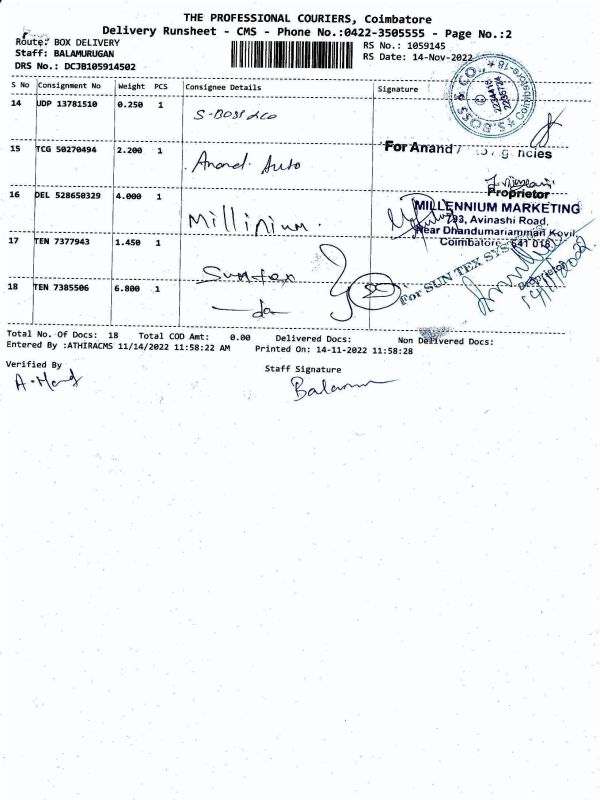 THE PROFESSIONAL COURIERS, Coimbatore
Delivery Runsheet - CMS - Phone No.:0422-3505555 - Page No.:2
Route: BOX DELIVERY
RS No.: 1059145
Staff: BALAMURUGAN
RS Date: 14-Nov-2022
DRS No.: DCJB105914502
S No Consignment No Weight PCS Consignee Details Signature
14 UDP 13781510 0.250 1 S-BOSS &co
S.BOSS & CO.
15 TCG 50270494 2.200 1 Anand Auto
For Anand
ncies
Proprietor
16 DEL 528650329 4.000 1 Millinium.
MILLENNIUM MARKETING
293, Avinashi Road,
Near Dhandumariamman Kovil
Coimbatore - 641 018
17 TEN 7377943 1.450 1 Suntex
For SUN TEX SYS
Proprietor
14/11/2022
18 TEN 7385506 6.800 1 —do—
Total No. Of Docs: 18 Total COD Amt: 0.00 Delivered Docs: Non Delivered Docs:
Entered By :ATHIRACMS 11/14/2022 11:58:22 AM Printed On: 14-11-2022 11:58:28
Verified By
Staff Signature
Balamu